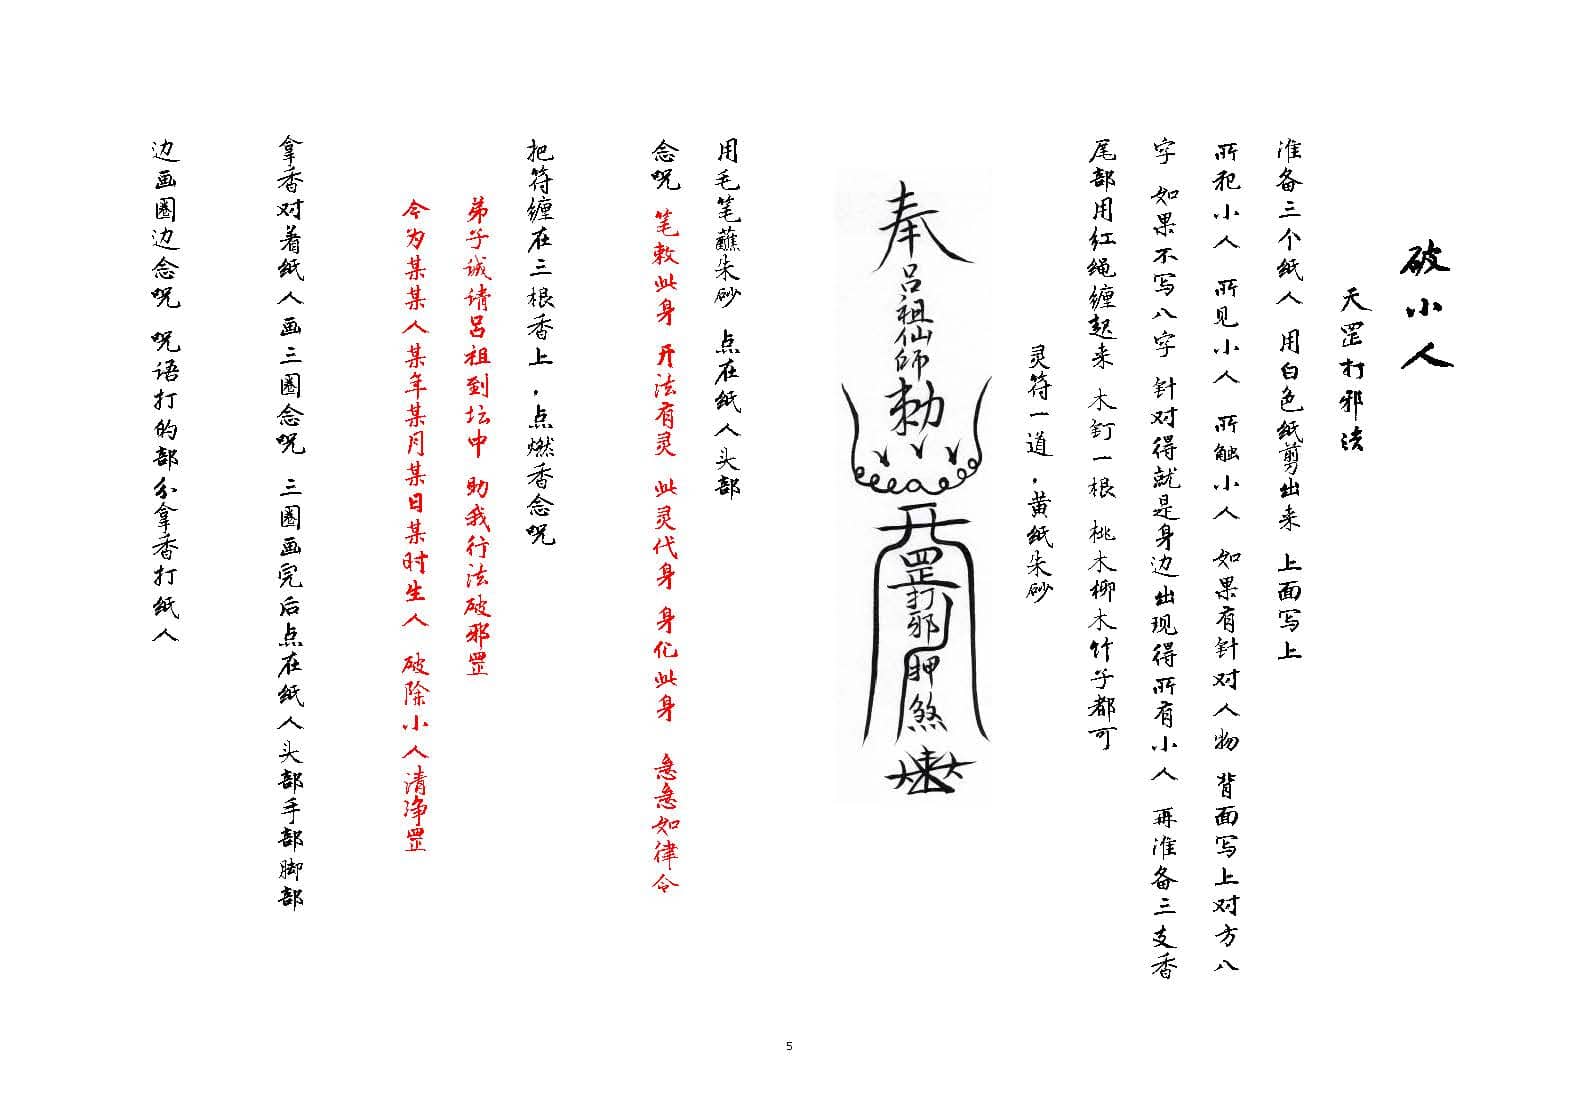 破小人
天罡打邪法
准备三个纸人 用白色纸剪出来 上面写上
所犯小人 所见小人 所触小人 如果有针对人物 背面写上对方八
字 如果不写八字 针对得就是身边出现得所有小人 再准备三支香
尾部用红绳缠起来 木钉一根 桃木柳木竹子都可
灵符一道.黄纸朱砂
奉
吕祖仙師
勅
罡打邪
押煞
用毛笔蘸朱砂 点在纸人头部
念咒 笔敕此身 开法有灵 此灵代身 身化此身 急急如律令
把符缠在三根香上.点燃香念咒
弟子诚请吕祖到坛中 助我行法破邪罡
今为某某人某年某月某日某时生人 破除小人清净罡
拿香对着纸人画三圈念咒 三圈画完后点在纸人头部手部脚部
边画圈边念咒 咒语打的部分拿香打纸人
5